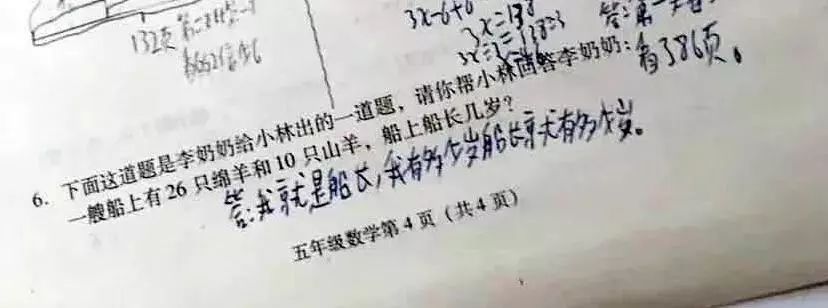 132页
3x-6+6
3x=138
3x÷3=138÷3
有386页。
6. 下面这道题是李奶奶给小林出的一道题，请你帮小林回答李奶奶：
一艘船上有 26 只绵羊和 10 只山羊，船上船长几岁？
答：我就是船长，我有多少岁船长就有多少岁。
五年级数学第 4 页（共 4 页）